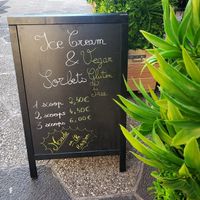 Ice Cream
& Vegan
Sorbets Gluten
Free
1 scoop 2,50€
2 scoops 4,50€
3 scoops 6,00€
Made